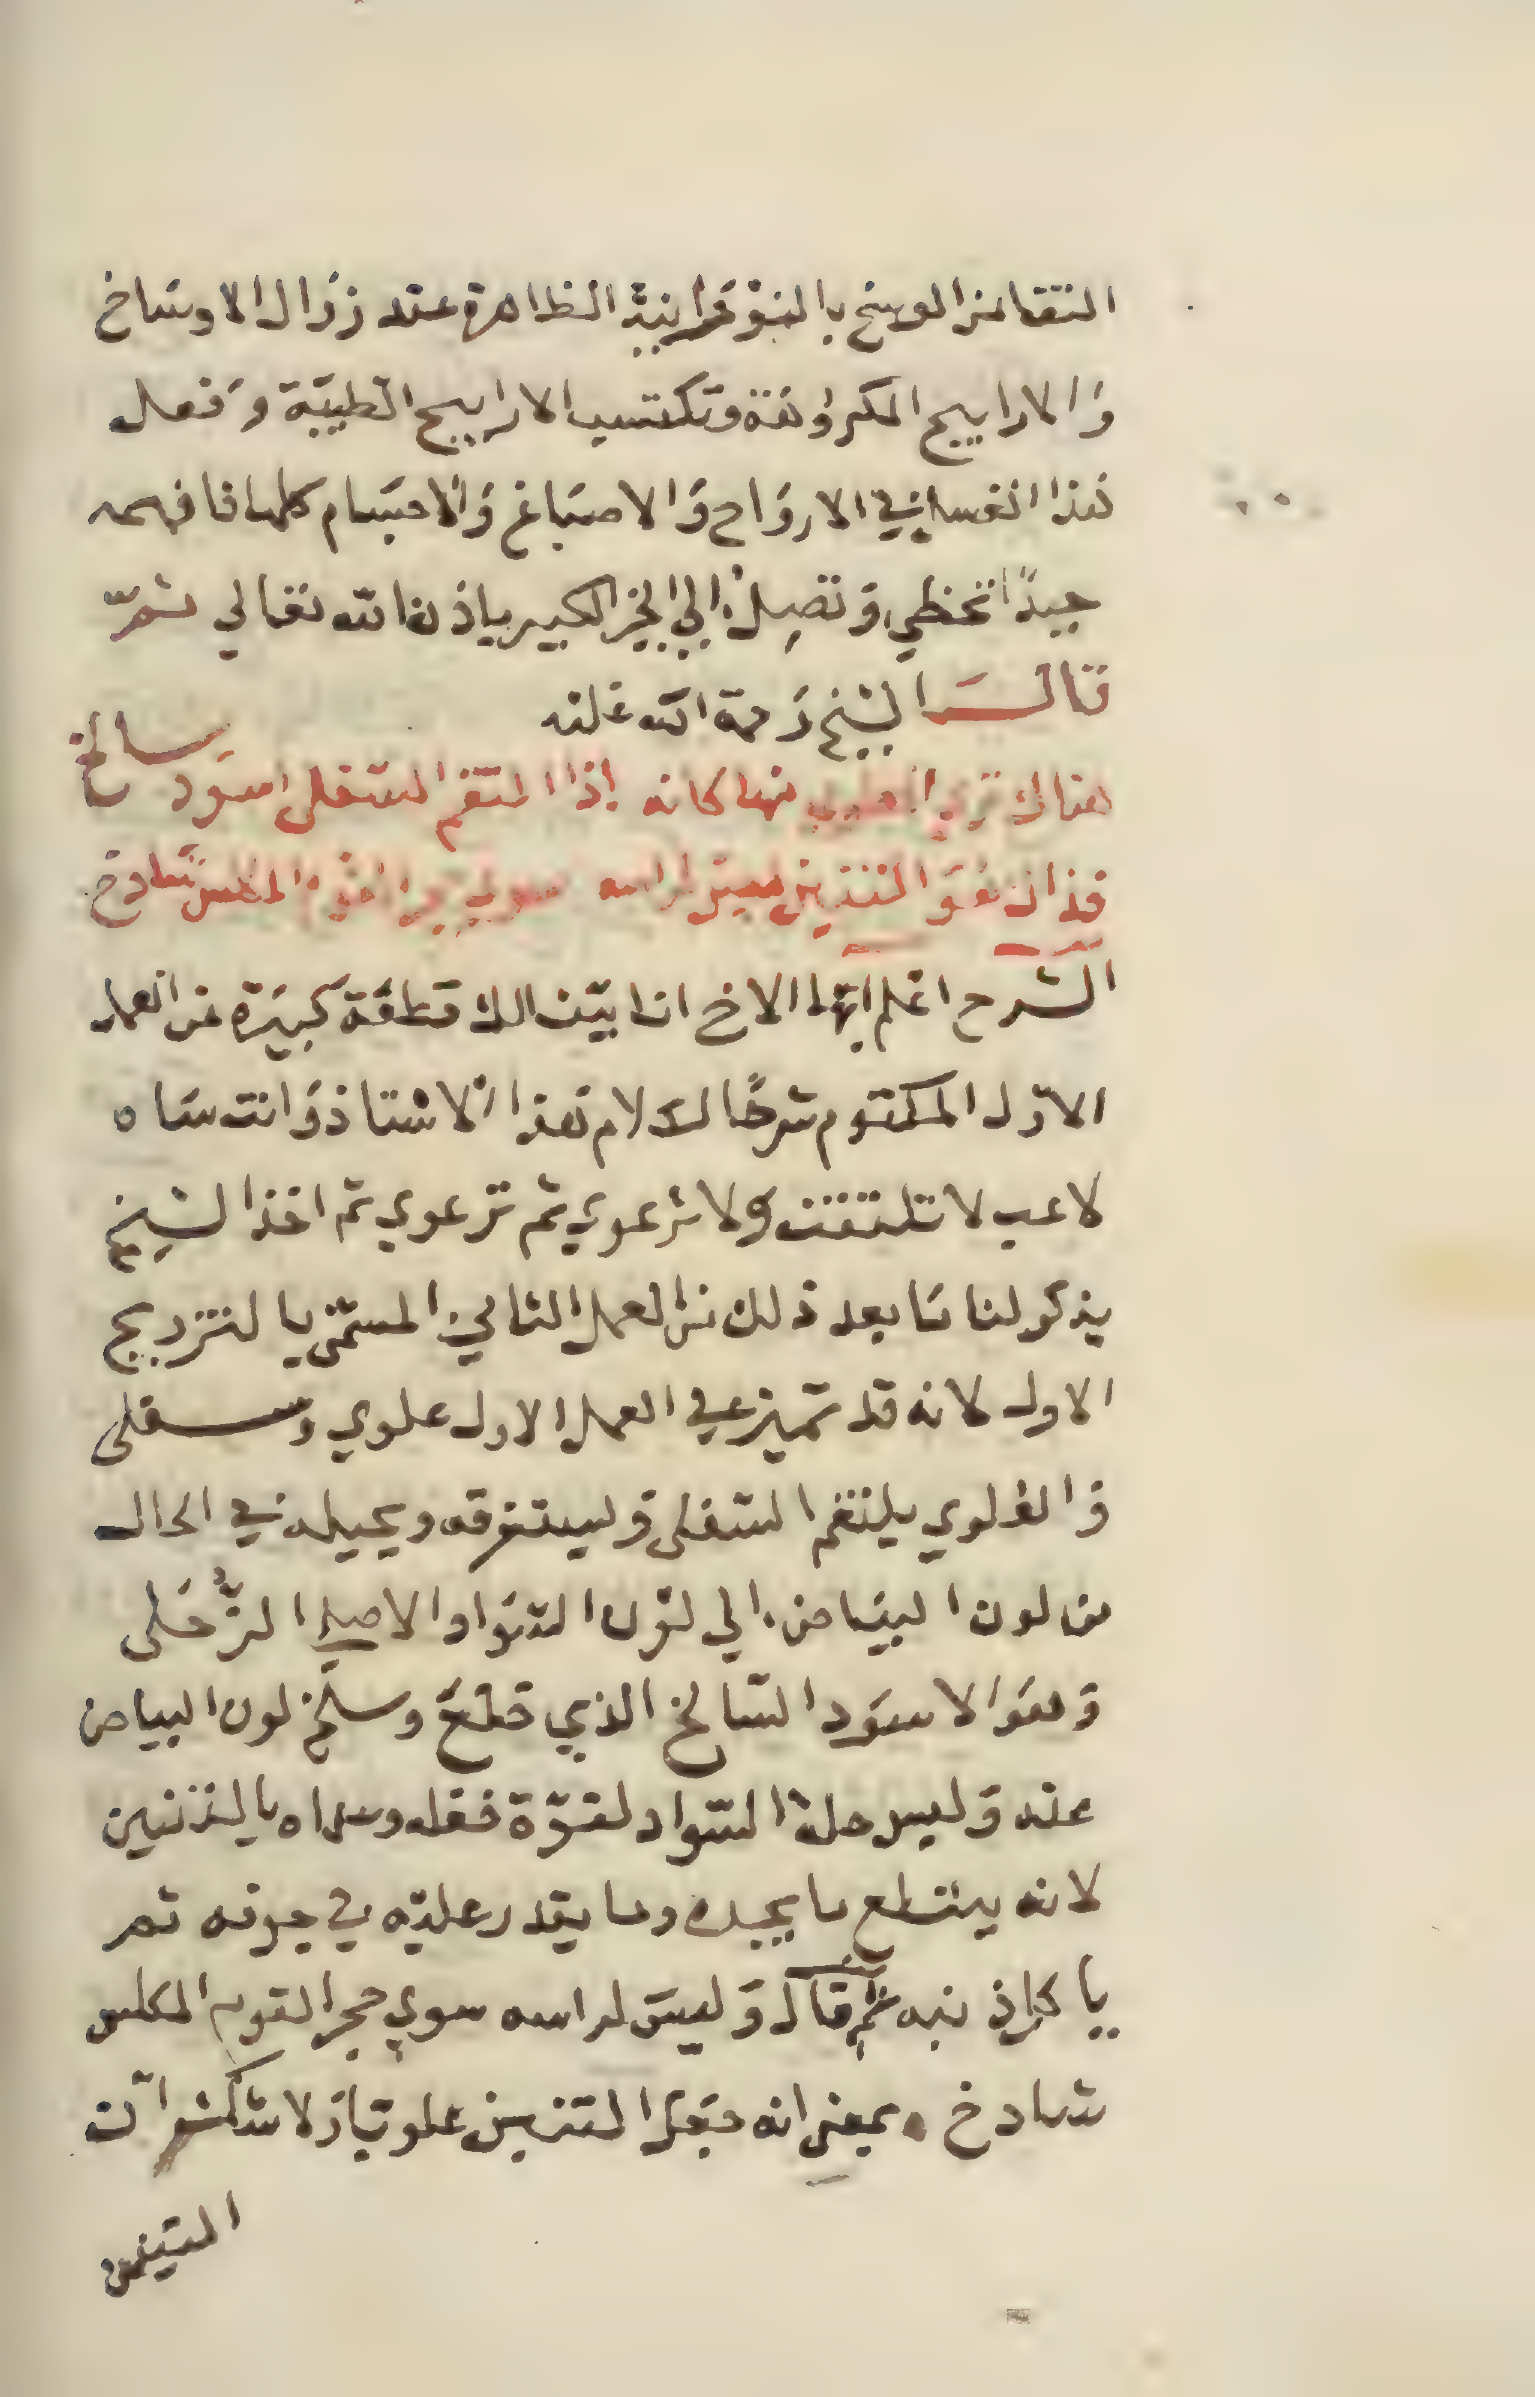 النقا من الوسخ بالنورانية الظاهرة عند زوال الاوساخ
وَالاراييح المكروهة وتكتسب الاراييح الطيبة وفعل
هذا الغسل في الارواح وَالاصباغ وَالاجسَام كلها فافهمه
جيدًا تحظي وَتصل الي الخير الكبير باذن الله تعالي ثمّ
قال الشيخ رَحمة الله عليه
هناك تري العلوي منها كانه اذا التقم السفلي اسوَد سالخ
فذاك هوَ التنين ليس لراسه سوي حجر القوم المكلس شادخ
الشرح اعلم ايها الاخ انا بيّنا لك قطعَة كبيرَة من العمل
الاوّل المكتوم شرحًا لكلام هذا الاستاذ وَانت سَاه
لاعب لا تلتفت ولا ترعوي ثم ترعوي ثم اخذ الشيخ
يذكر لنا مَا بعد ذلك من العمل الثاني المسمّي بالتزويج
الاول لانه قد تميز في العمل الاول علوي وسفلي
وَالعلوي يلتقم السفلي وَيستغرقه ويحيله في الحال
من لون البيَاض الي لوْن السّوَاد الاصلي الزُّحَلي
وَهوَ الاسوَد السّالخ الذي خلعَ وسلخ لون البياض
عنه وَلبس حلة السّواد لقوّة فعله وسماه بالتنين
لانه يبتلع ما يجده وما يقدر عليه في جوفه ثمر
ثم قال وَليسَ لراسه سوي حجر القوم المكلس
شادخ بمعني انه جعَل التنين علويّا وَلا شك انّ
التنين